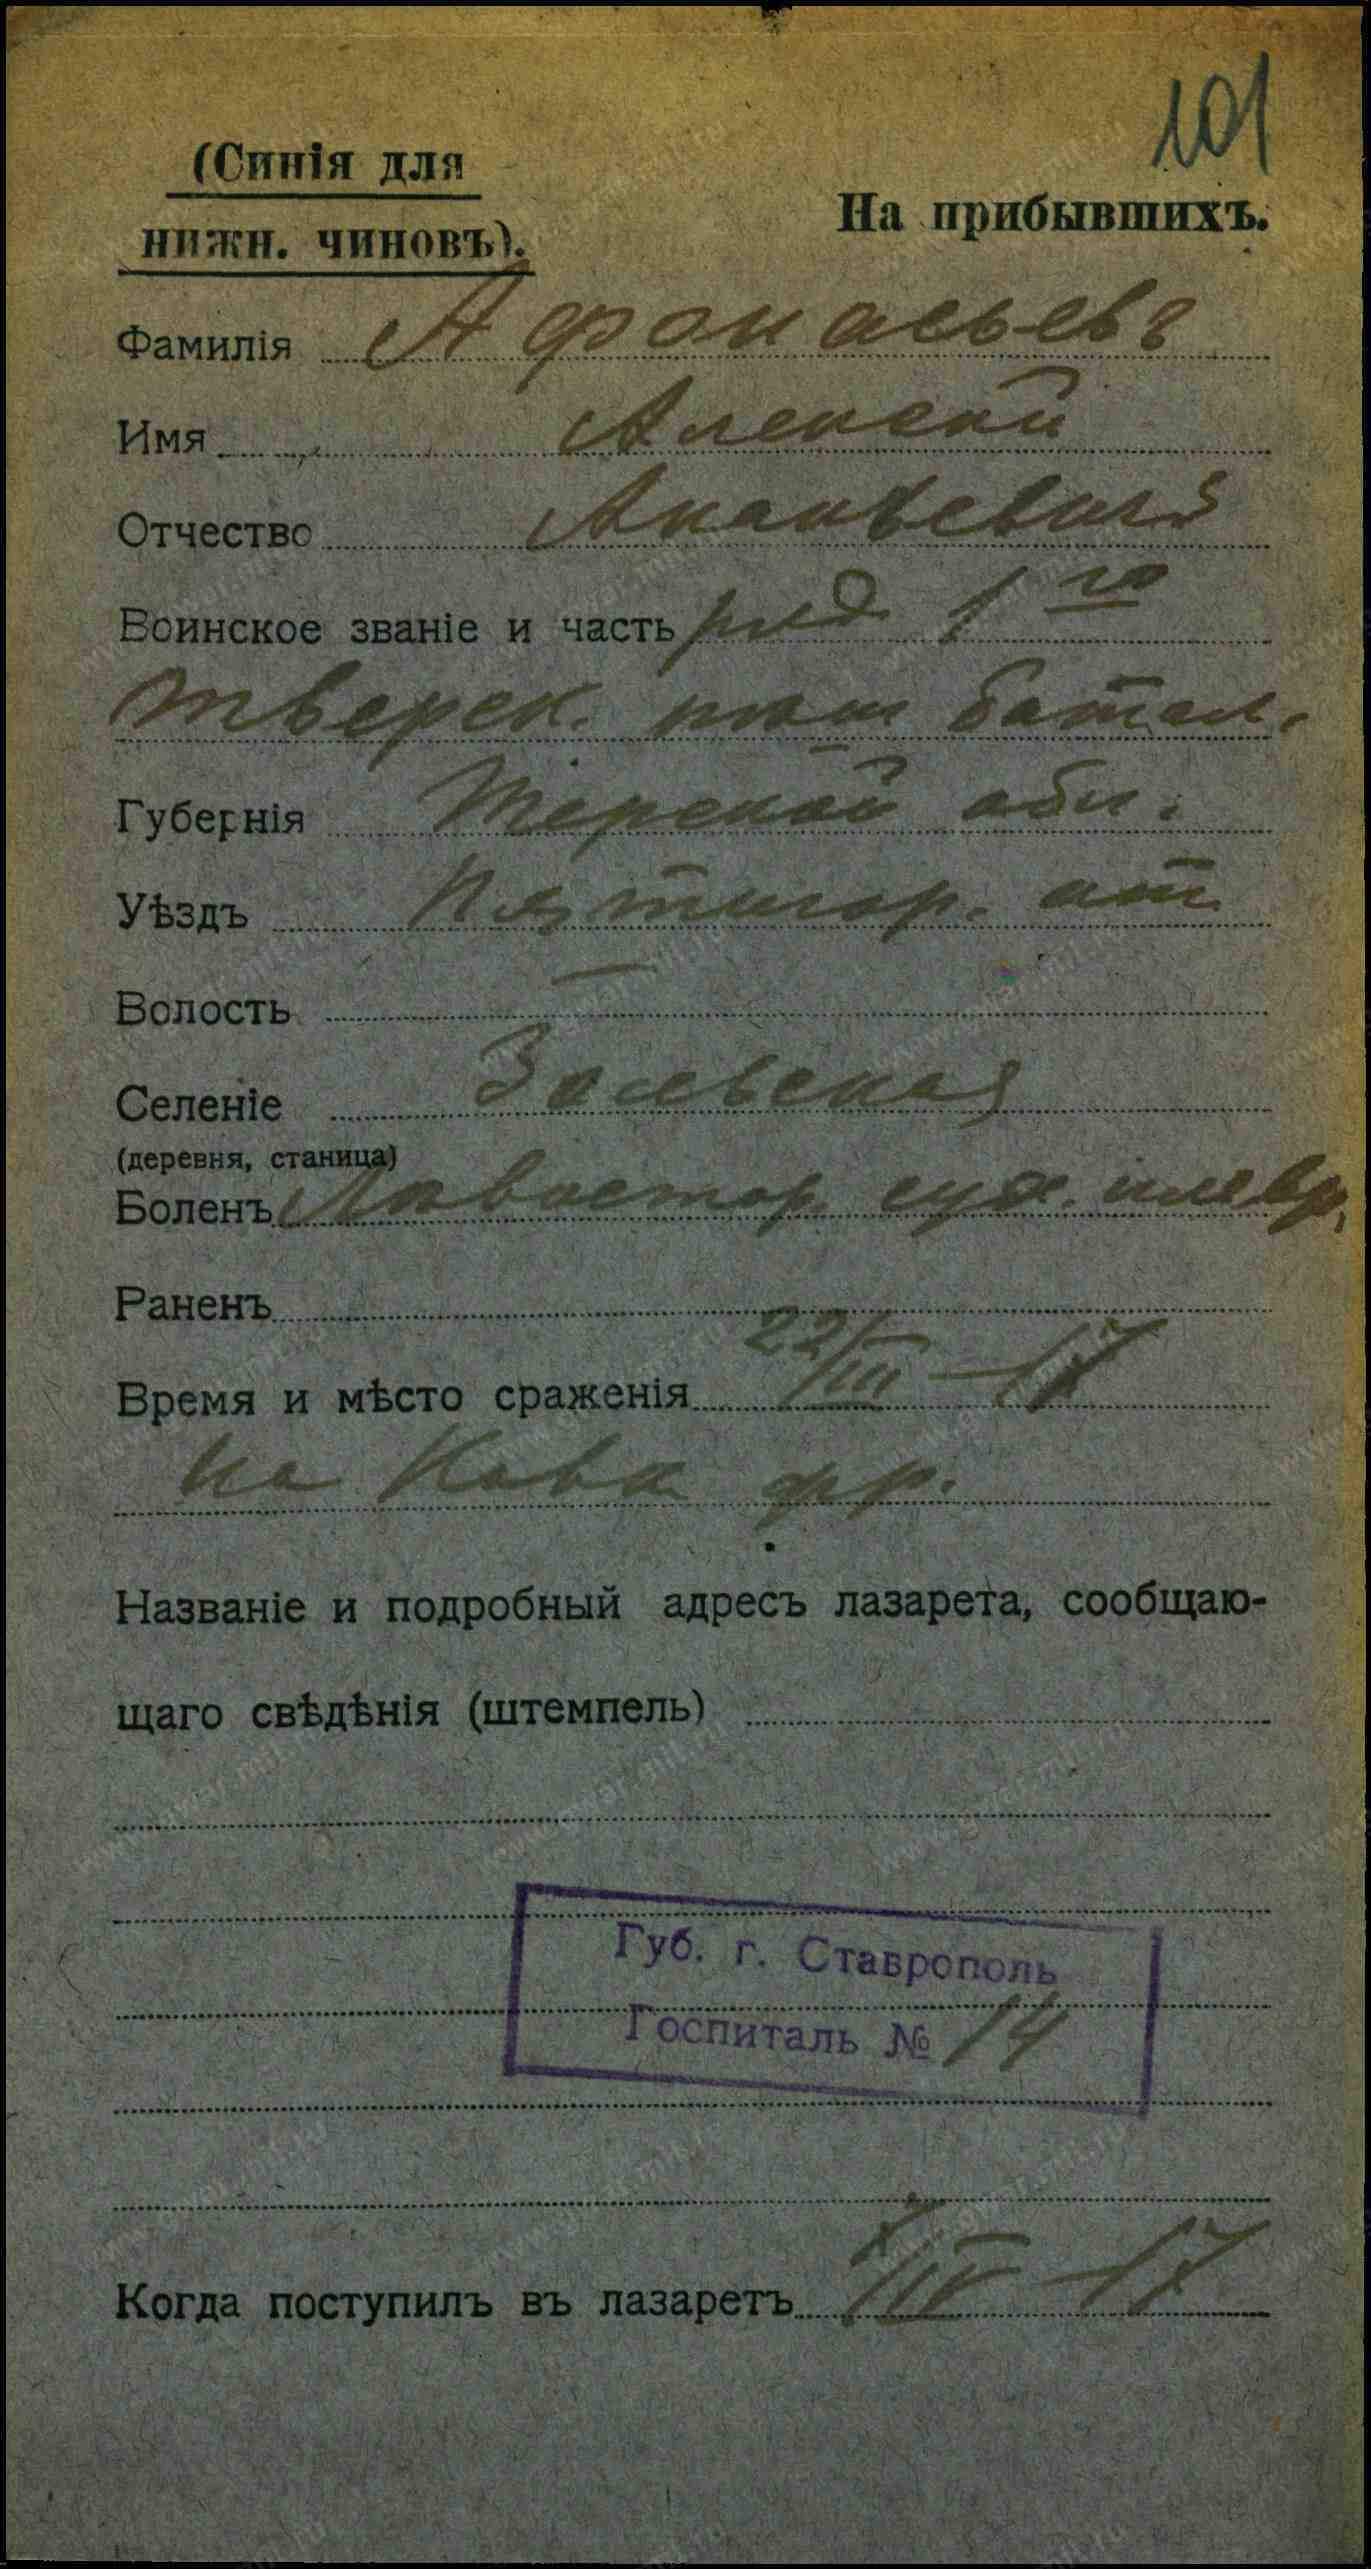 101
(Синія для
нижн. чиновъ).
На прибывшихъ.
Фамилія Афонасьевъ
Имя Алексей
Отчество Ананьевичъ
Воинское званіе и часть ряд 1го
Тверск. баталь.
Губернія Терской обл.
Уѣздъ Пятигор. от
Волость —
Селеніе Зольская
(деревня, станица)
Боленъ Лѣвостор сух. плевр.
Раненъ
Время и мѣсто сраженія 22/III – 17
на Кавк фр.
Названіе и подробный адресъ лазарета, сообщаю-
щаго свѣдѣнія (штемпель)
Губ. г. Ставрополь
Госпиталь № 14
Когда поступилъ въ лазаретъ /IV – 17